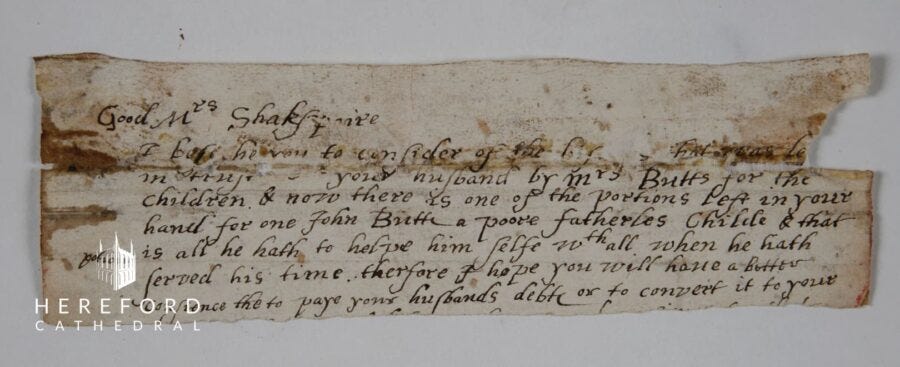 Good Mrs Shakspaire
I bese he you to consider of the hat was le
in trus your husband by Mrs Butts for the
Children, & now there is one of the portions Left in your
hand for one John Butte a poore fatherles Childe & that
is all he hath to helpe him selfe wthall when he hath
served his time. therfore I hope you will have a better
the to paye your husbands debte or to convert it to your
HEREFORD
CATHEDRAL